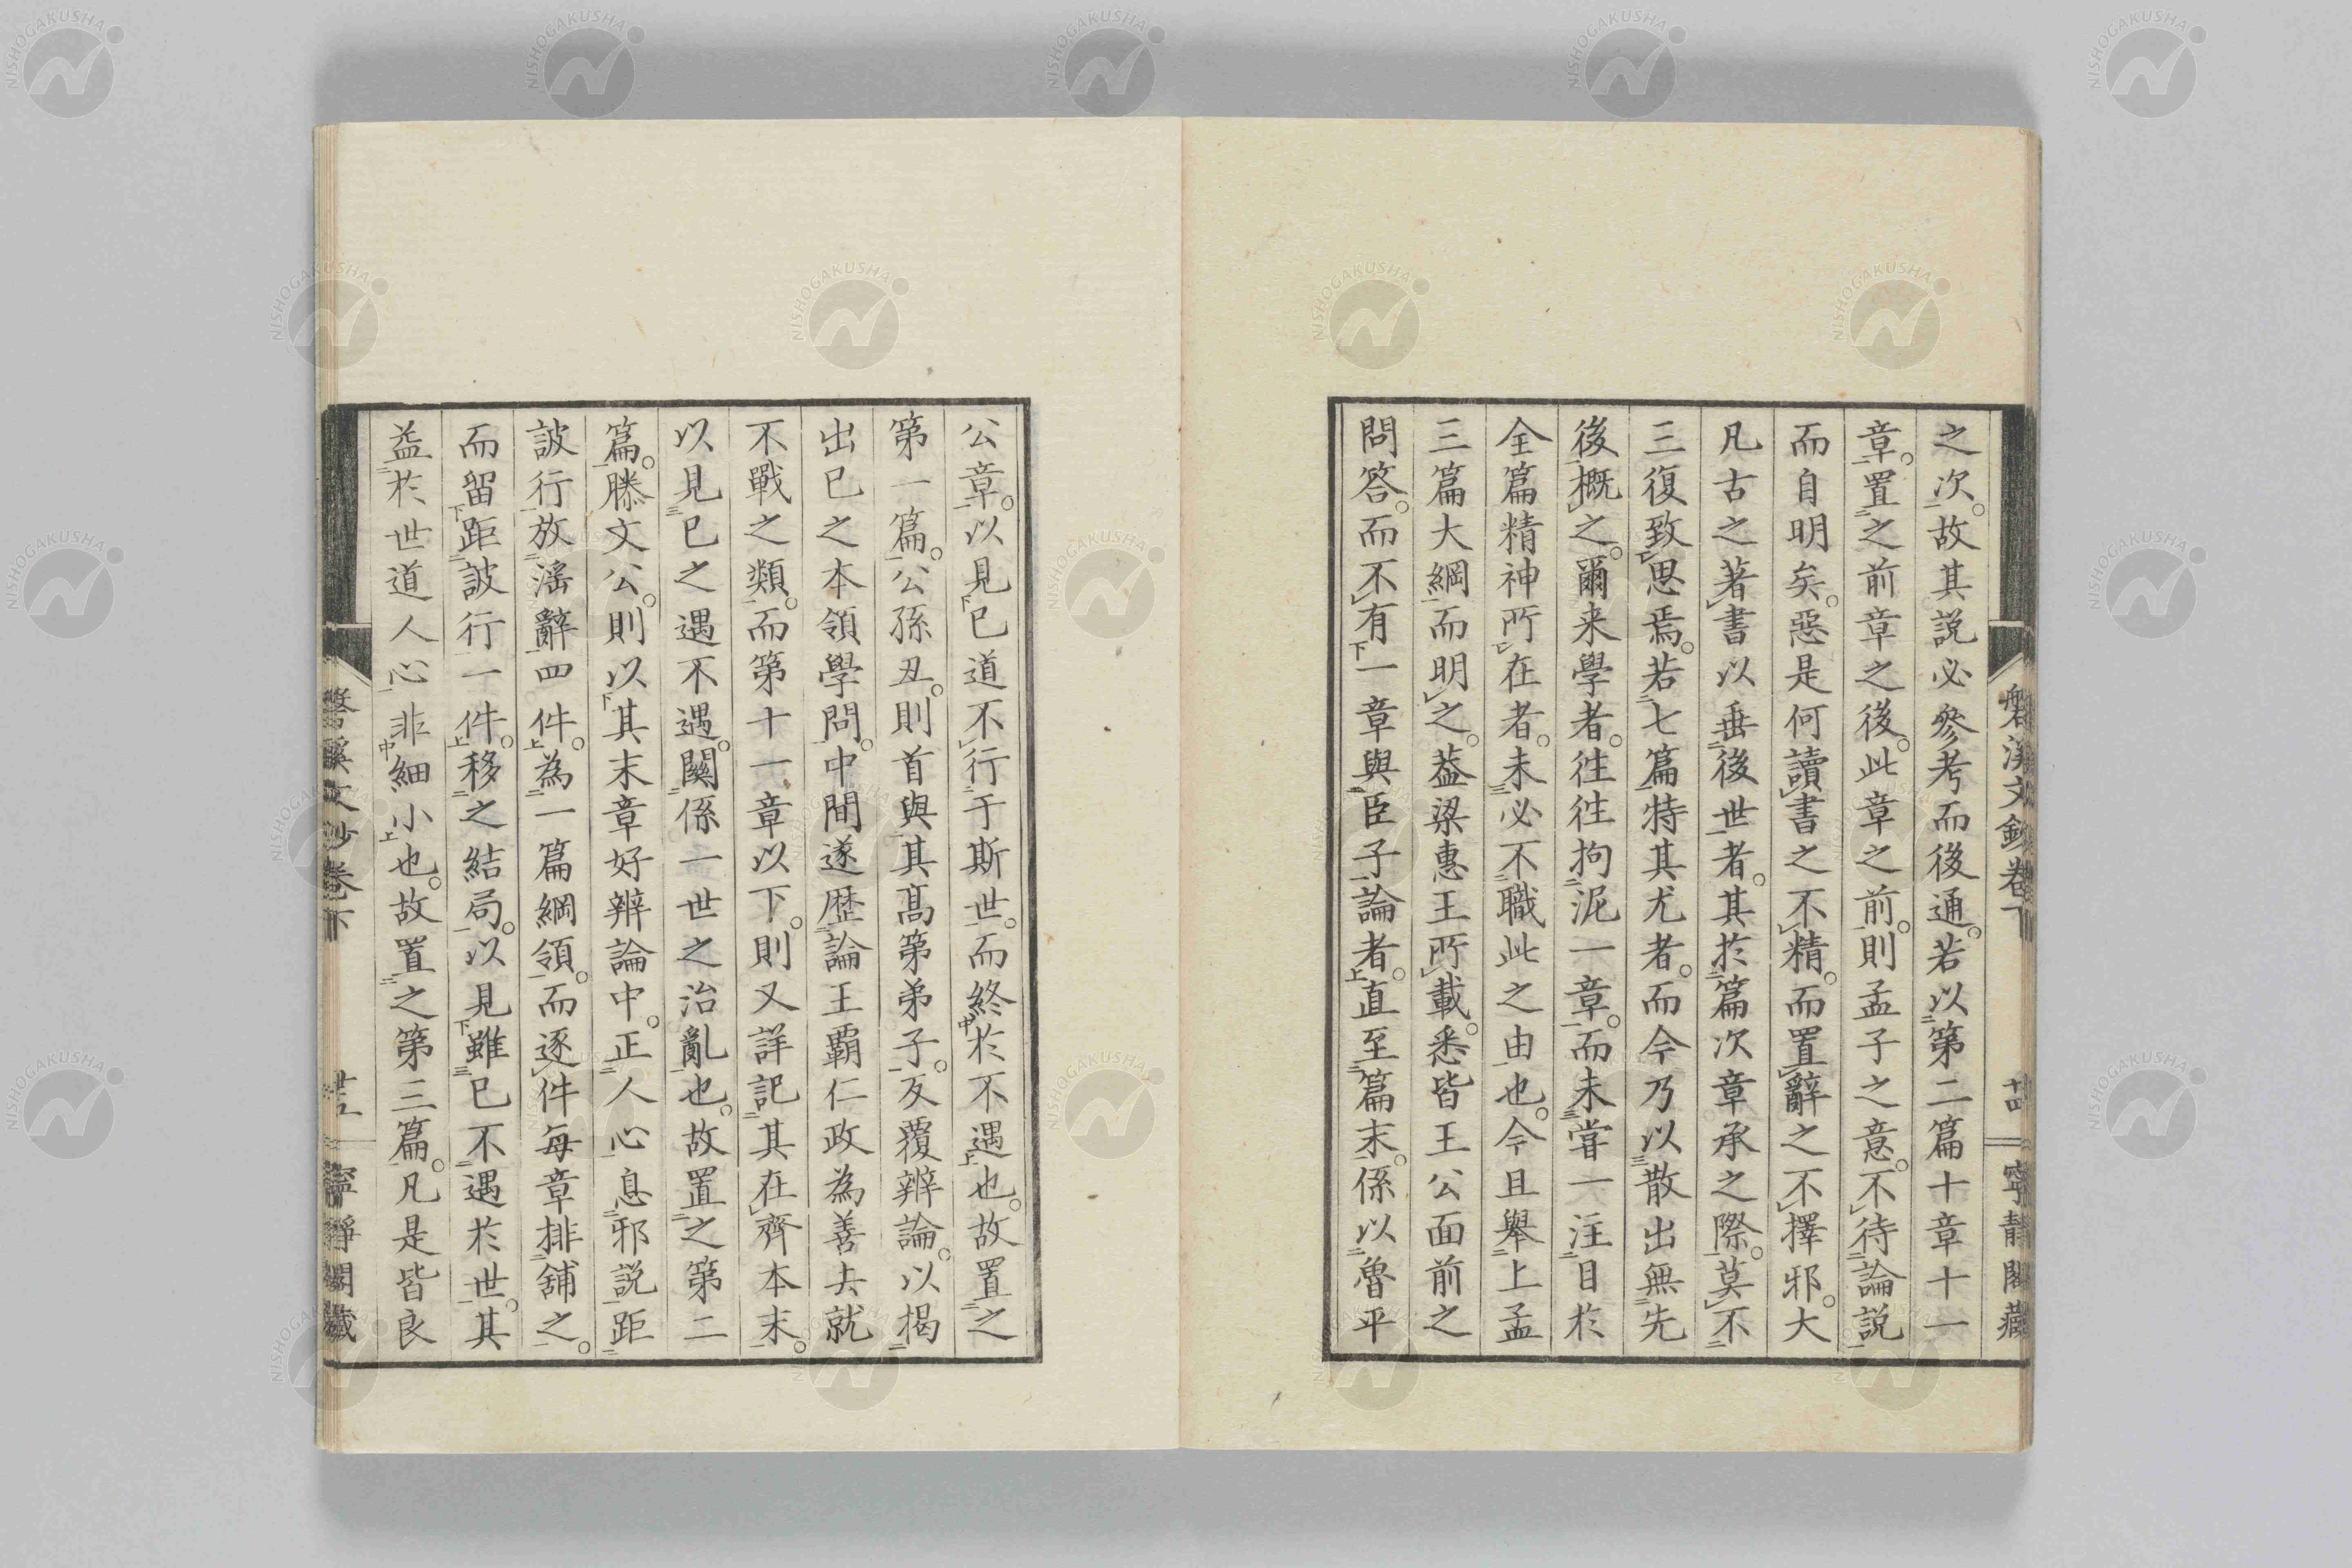 磐溪文鈔卷下 十四 寧靜閣藏
之次。故其説必參考而後通。若以第二篇十章十一
章。置之前章之後。此章之前。則孟子之意。不待論説
而自明矣。惡是何讀書之不精。而置辭之不擇邪。大
凡古之著書以垂後世者。其於篇次章承之際。莫不
三復致思焉。若七篇特其尤者。而今乃以散出無先
後概之。爾来學者。徃徃拘泥一章。而未甞一注目於
全篇精神所在者。未必不職此之由也。今且舉上孟
三篇大綱而明之。葢梁惠王所載。悉皆王公面前之
問答。而不有一章與臣子論者。直至篇末。係以魯平
公章。以見已道不行于斯世。而終於不遇也。故置之
第一篇。公孫丑。則首與其髙第弟子。反覆辨論。以揭
出已之本領學問。中間遂歴論王覇仁政為善去就
不戰之類。而第十一章以下。則又詳記其在齊本末。
以見已之遇不遇。關係一世之治亂也。故置之第二
篇。滕文公。則以其末章好辨論中。正人心息邪説距
詖行放滛辭四件。為一篇綱領。而逐件每章排舖之。
而留距詖行一件。移之結局。以見雖已不遇於世。其
益於世道人心。非細小也。故置之第三篇。凡是皆良
磐溪文鈔卷下 十五 寧靜閣藏
NISHOGAKUSHA